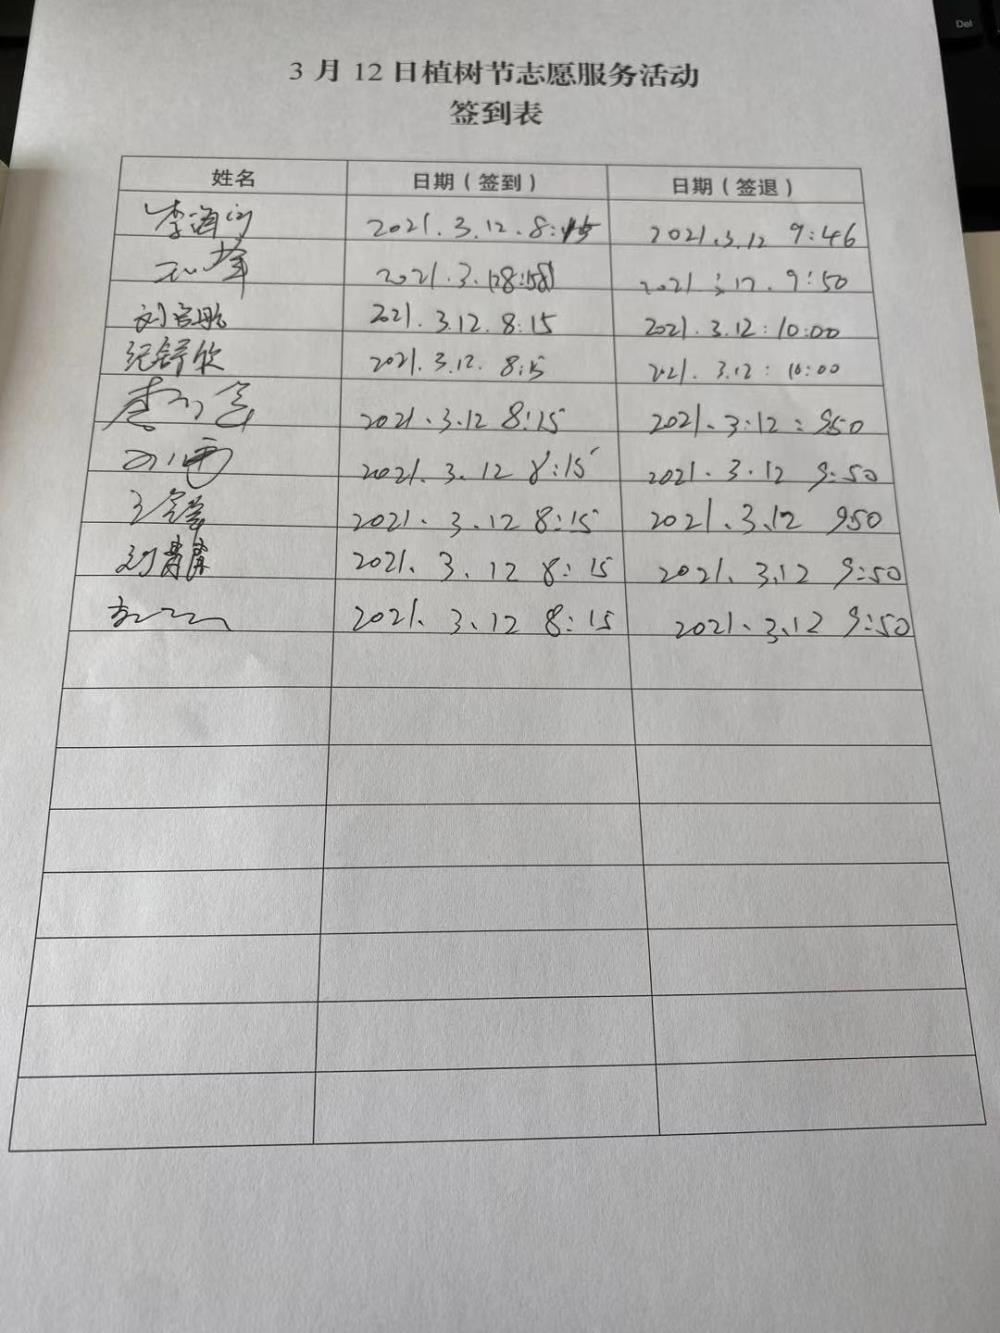 Del
3 月 12 日植树节志愿服务活动
签到表
姓名 日期（签到） 日期（签退）
李海 2021.3.12.8:15 2021.3.12 9:46
2021.3. 2021 12.9:50
刘 2021.3.12.8:15 2021.3.12:10:00
纪舒欣 2021.3.12. 8:15 2021. 3.12:10:00
2021.3.12 8:15 2021.3.12:950
2021.3.12 8:15 2021.3.12 9:50
王 2021.3.12 8:15 2021.3.12 950
刘 2021.3.12 8:15 2021.3.12 9:50
2021.3.12 8:15 2021.3.12 9:50